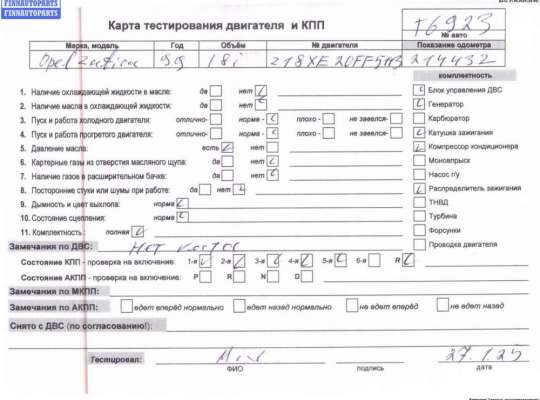 FINNAUTOPARTS
Карта тестирования двигателя и КПП
Т6923
№ авто
Марка, модель Год Объём № двигателя Показание одометра
Opel Zafira 99 1.8i Z18XE 20FF5113 214432
комплектность
1. Наличие охлаждающей жидкости в масле: да нет
Блок управления ДВС
2. Наличие масла в охлаждающей жидкости: да нет
Генератор
3. Пуск и работа холодного двигателя: отлично- норма - плохо - не завелся-
Карбюратор
4. Пуск и работа прогретого двигателя: отлично- норма - плохо - не завелся-
Катушка зажигания
5. Давление масла: есть нет
Компрессор кондиционера
6. Картерные газы из отверстия масляного щупа: да нет
Моновпрыск
7. Наличие газов в расширительном бачке: да нет
Насос г/у
8. Посторонние стуки или шумы при работе: да нет
Распределитель зажигания
9. Дымность и цвет выхлопа: норма
ТНВД
10. Состояние сцепления: норма
Турбина
11. Комплектность: полная
Форсунки
Замечания по ДВС: нет
Проводка двигателя
Состояние КПП - проверка на включение: 1-я 2-я 3-я 4-я 5-я 6-я R
Состояние АКПП - проверка на включение: P R N D
Замечания по МКПП:
Замечания по АКПП: едет вперёд нормально едет назад нормально не едет вперёд не едет назад
Снято с ДВС (по согласованию!):
Тестировал: 27.1.25
ФИО подпись дата